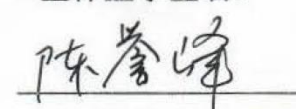 陈誉峰